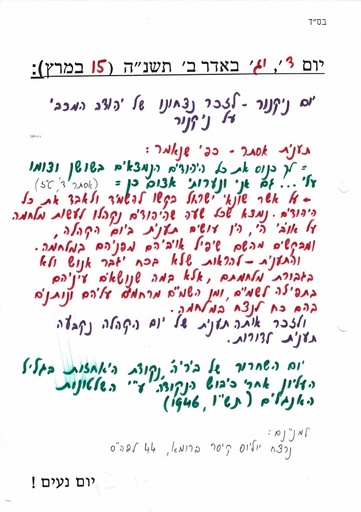 בס״ד
יום ד׳, יג׳ באדר ב׳ תשנ״ה (15 במרץ):
יום ניקנור - לזכר נצחונו של יהודה המכבי
על ניקנור
תענית אסתר - כפי שנאמר:
= לך כנוס את כל היהודים הנמצאים בשושן וצומו
עלי... גם אני ונערותי אצום כן = (אסתר ד׳, ט״ז)
- על אשר שונאי ישראל בקשו להשמיד ולאבד את כל
היהודים. נמצא שכל שעה שהיהודים נקהלו לעשות מלחמה
על אויביהם, היו עושים תענית ביום הקהלה,
ומבקשים מהשם שיפיל אויביהם מפניהם במלחמה.
והתענית - להראות שלא בכח יגבר אנוש ולא
בגבורת מלחמתם, אלא במה שנושאים עיניהם
בתפילה לשמים, ומן השמים מרחמים עליהם ונותנים
בהם כח לנצח במלחמה.
ולזכר אותה תענית של יום הקהלה נקבעה
תענית לדורות.
יום השחרור של ביריה, נקודת היאחזות בגליל
העליון אחרי כיבוש הנקודה ע״י השלטונות
האנגלים (תש״ו, 1946)
למניינם:
נרצח יוליוס קיסר ברומא, 44 לפה״ס
יום נעים !